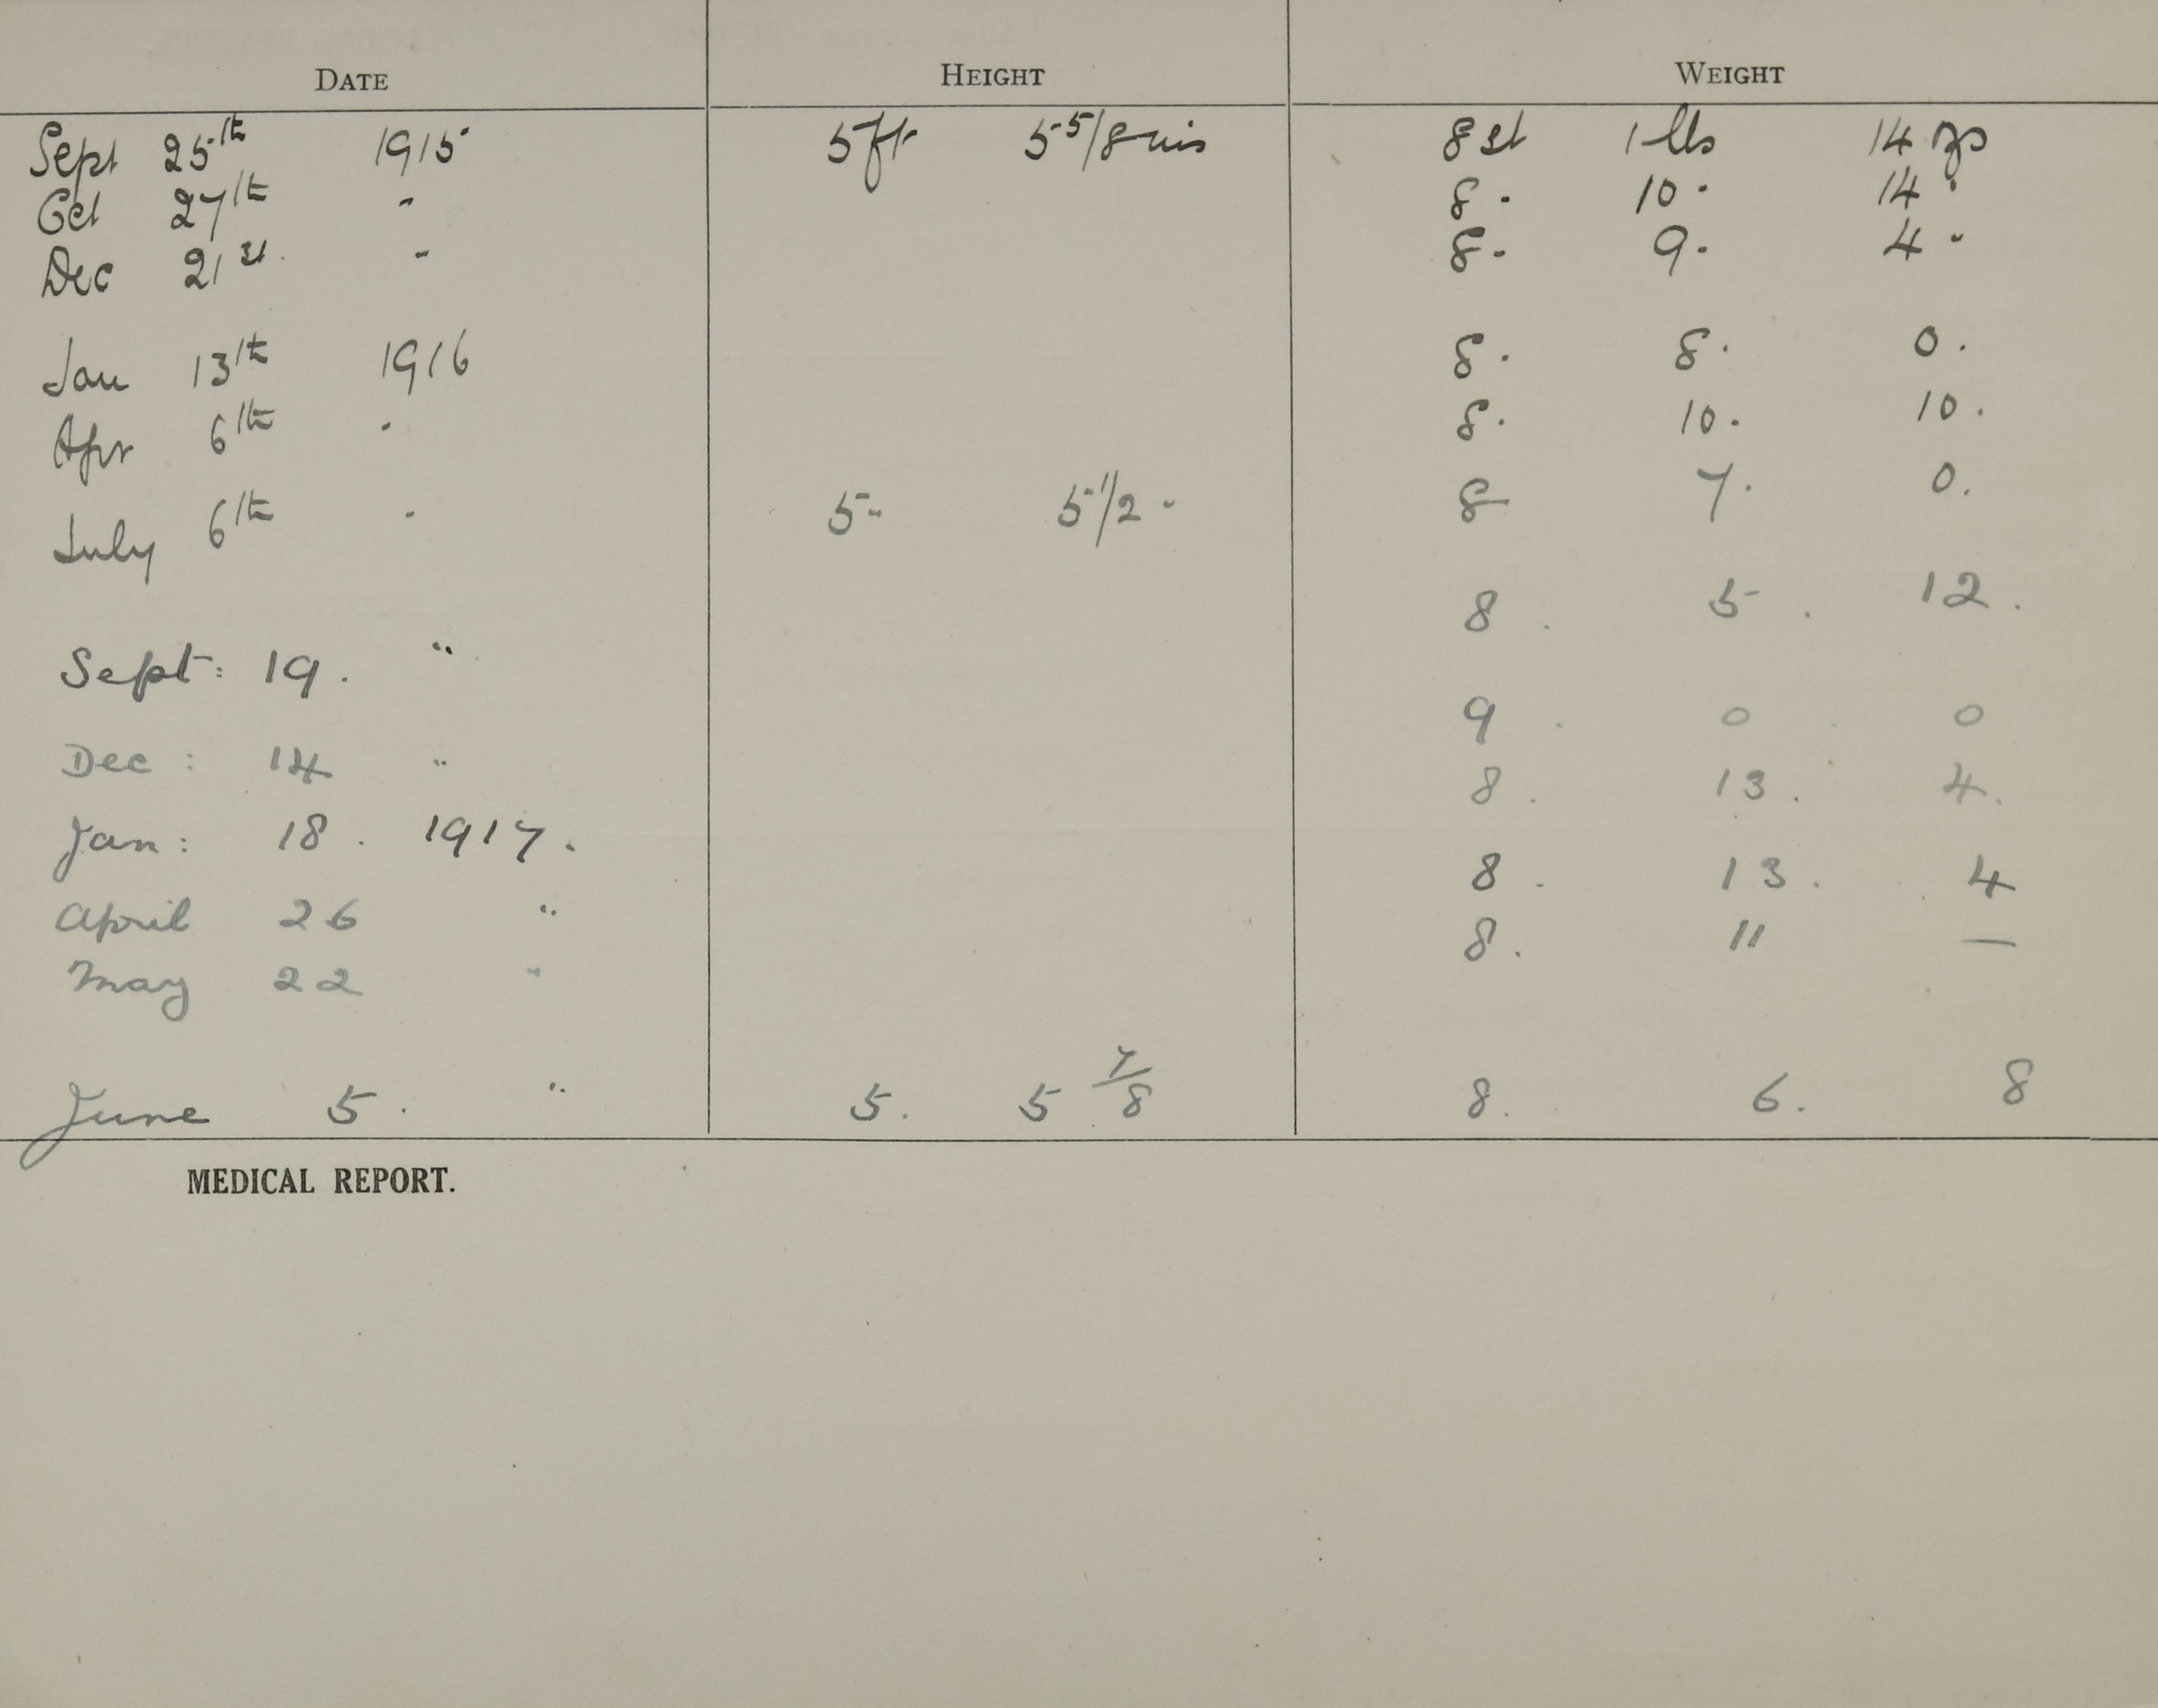 DATE HEIGHT WEIGHT
Sept 25th 1915 5ft 5 5/8 ins 8 st 1 lbs 14 ozs
Oct 27th " 8 . 10 . 14 .
Dec 21st . " 8 . 9 . 4 "
Jan 13th 1916 8 . 8 . 0 .
Apr 6th " 8 . 10 . 10 .
July 6th " 5 " 5 1/2 " 8 7 . 0 .
Sept : 19 . " 8 . 5 . 12 .
Dec : 14 " 9 . 0 . 0
Jan : 18 . 1917 . 8 . 13 . 4 .
April 26 " 8 . 13 . 4
May 22 " 8 . 11 —
June 5 . " 5 . 5 7/8 8 . 6 . 8
MEDICAL REPORT.